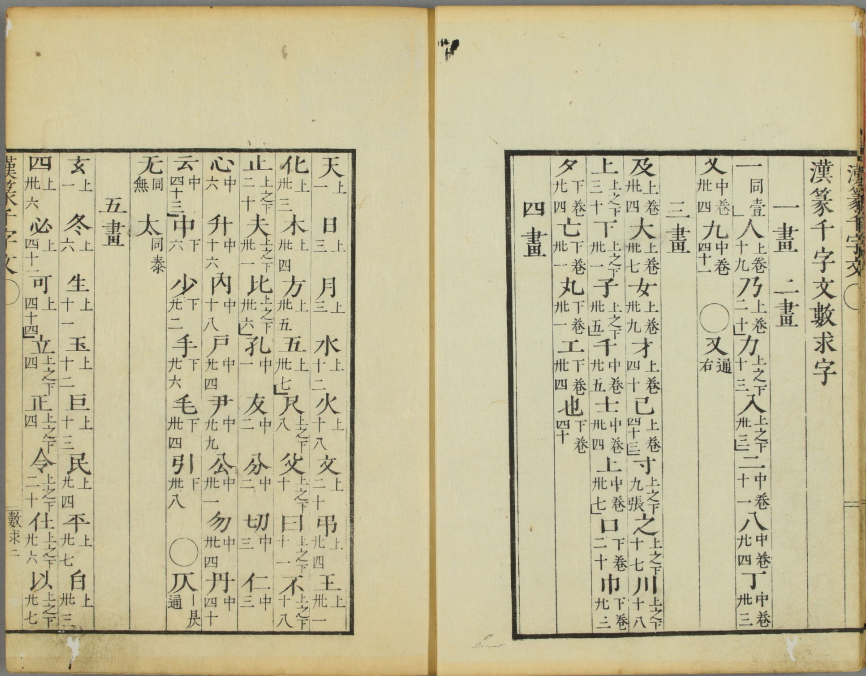 漢篆千字文數求字
一畫 二畫
一同壹 人上卷十九 乃上卷二十 力上之下十三 入上之下卅三 二中卷十一 八中卷廾四 丁中卷卅三
乂中卷卅四 九中卷四十一 〇 又通右
三畫
及上卷卅四 大上卷卅七 女上卷卅九 才上卷四十 己上卷四十三 寸上之下九張 之上之下十七 川上之下十八
上上之下三十 下上之下卅一 子上之下卅五 千中卷廾五 士中卷卅四 上中卷卅七 口下卷二十 巾下卷廾二
夕下卷廾四 亡下卷卅一 丸下卷卅一 工下卷卅四 也下卷四十
四畫
漢篆千字文
天上一 日上三 月上三 水上十二 火上十八 文上二十 弔上廾四 王上卅一
化上卅三 木上卅四 方上卅五 五上卅七 尺上之下八 父上之下十 曰上之下十一 不上之下十八
止上之下二十 夫上之下卅一 比上之下卅六 孔中一 友中二 分中二 切中三 仁中三
心中六 升中十六 內中十八 戶中廾四 尹中廾九 公中卅一 勿中卅四 丹中四十
云中四十三 中下六 少下廾二 手下廾六 毛下卅四 引下卅八 〇 仄通
无同無 太同泰
五畫
玄上一 冬上六 生上十一 玉上十二 巨上十三 民上廾四 平上廾七 白上卅三
四上卅六 必上四十二 可上四十四 立上之下四 正上之下四 令上之下二十 仕上之下廾六 以上之下廾七
漢篆千字文
數求二